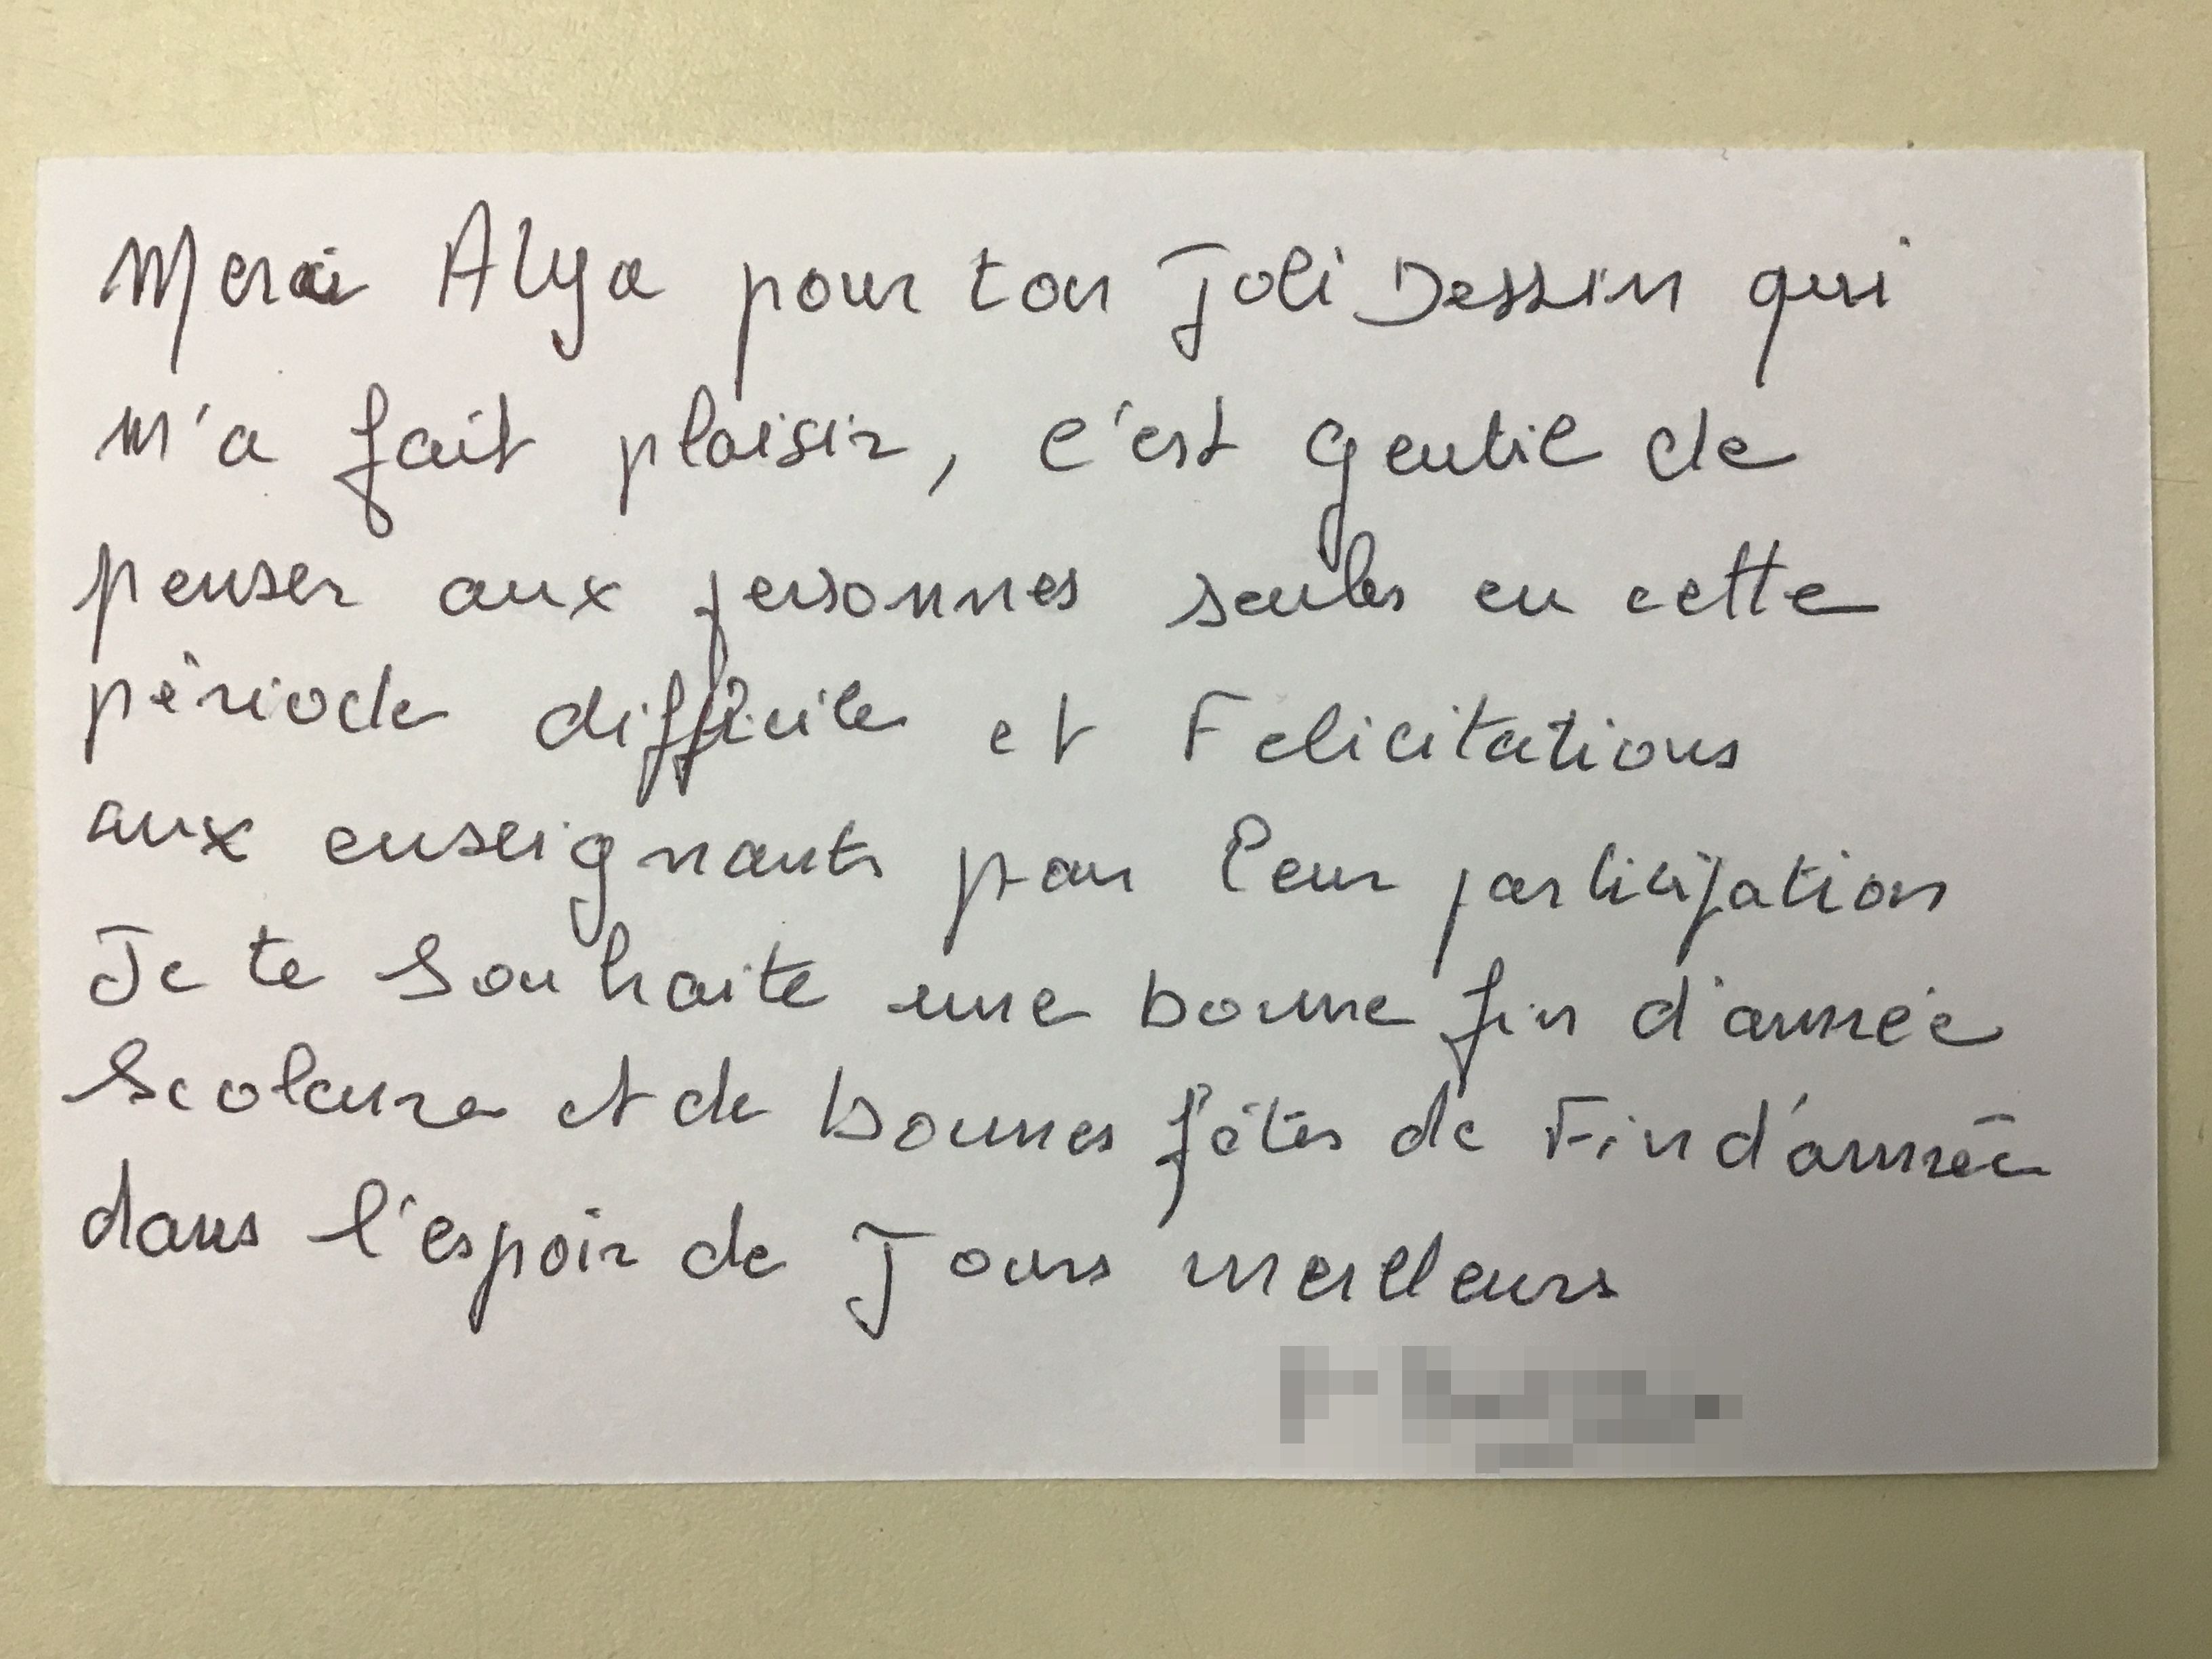 Merci Alya pour ton Joli Dessin qui
m'a fait plaisir, c'est gentil de
penser aux personnes seules en cette
période difficile et Felicitations
aux enseignants pour leur participation
Je te Souhaite une bonne fin d'année
Scolaire et de bonnes fêtes de Fin d'année
dans l'espoir de Jours meilleurs